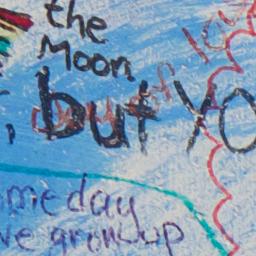 the
Moon
, but yo
meday
ve grow up